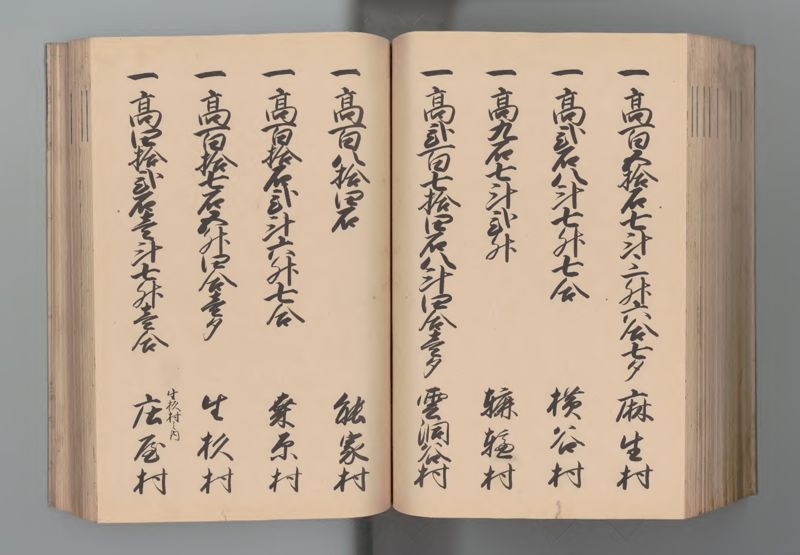 一高百五拾石七斗三升六合七夕 麻生村
一高弐石八斗七升七合 横谷村
一高九石七斗弐升 轆轤村
一高弐百七拾四石八斗四合壱夕 雲洞谷村
一高百八拾四石 能家村
一高百拾石弐斗六升七合 桑原村
一高百拾七石五升四合壱夕 生杉村
一高四拾弐石壱斗七升壱合 生杉村之内 庄屋村